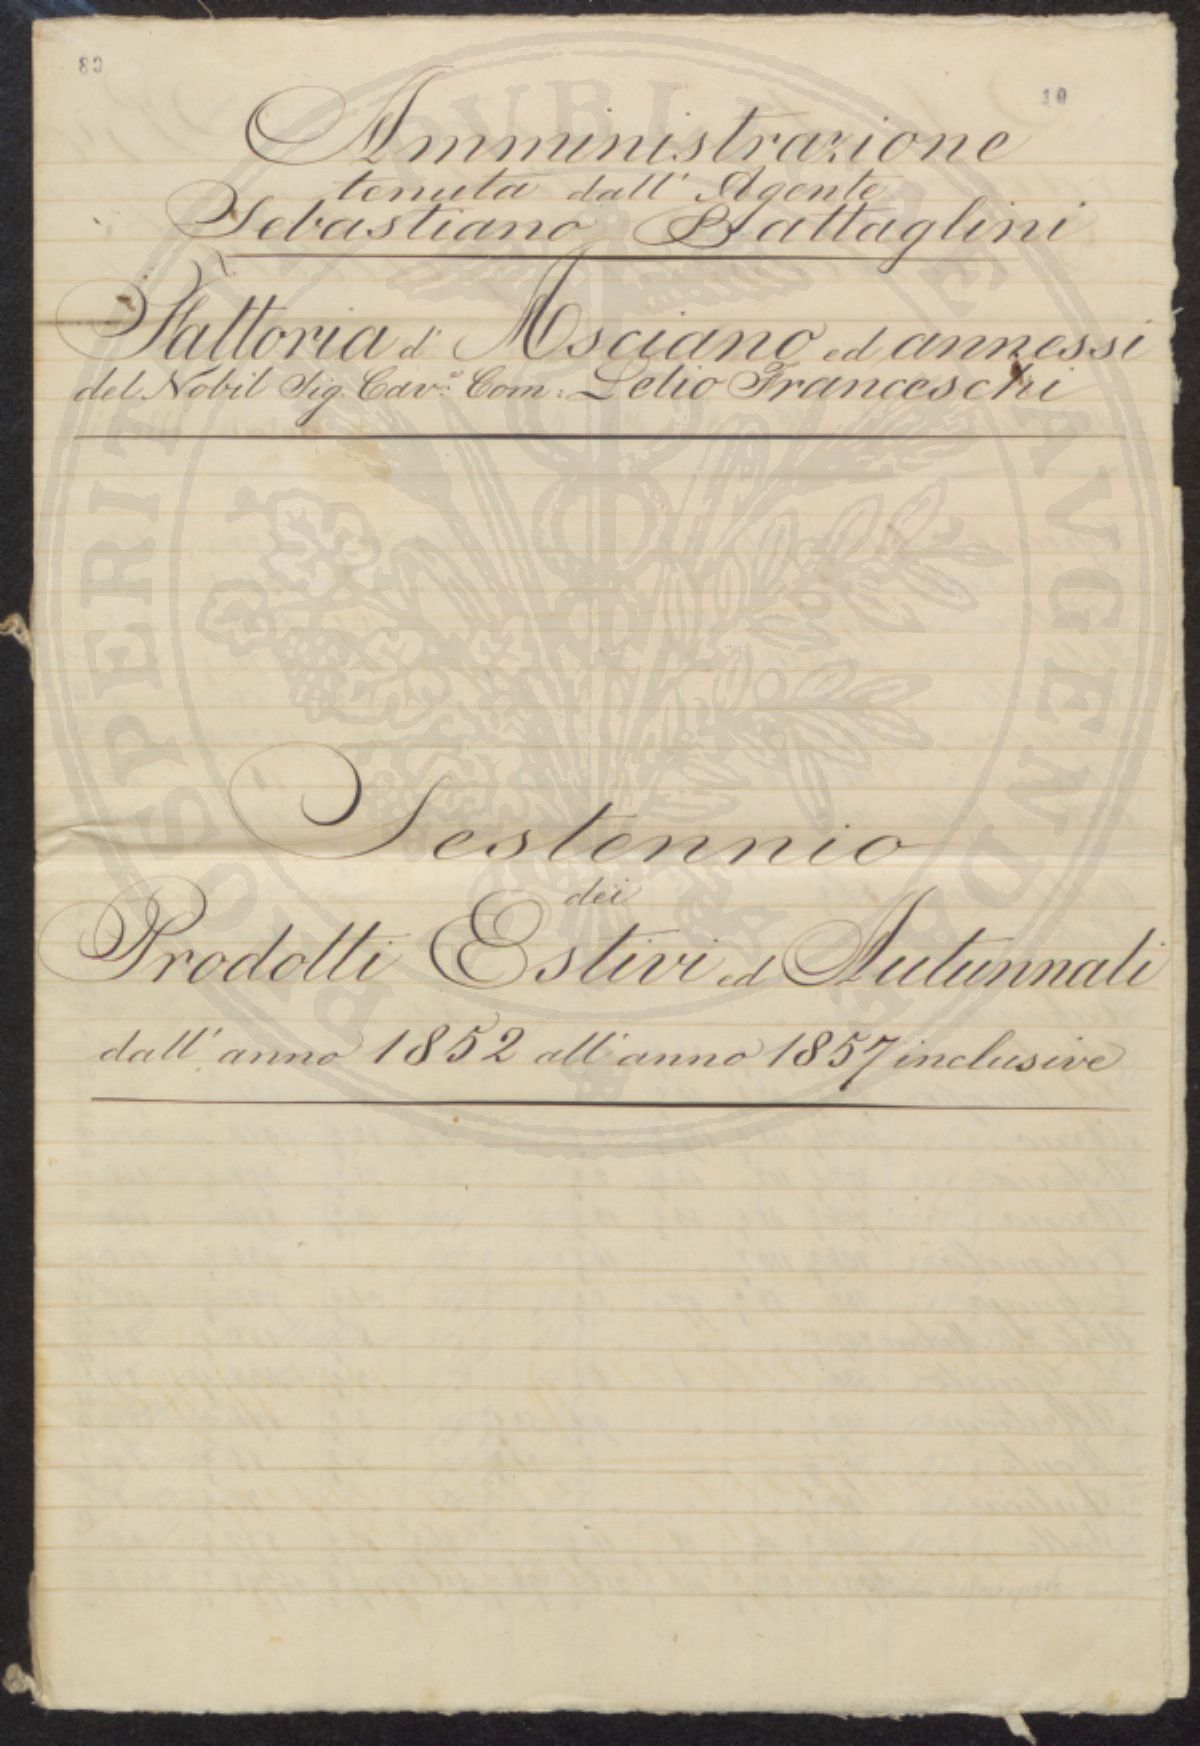 83
10
Amministrazione
tenuta dall' Agente
Sebastiano Battaglini
Fattoria d' Asciano ed annessi
del Nobil Sig. Cav.e Com: Lelio Franceschi
Sestennio
dei
Prodotti Estivi ed Autunnali
dall' anno 1852 all' anno 1857 inclusive
PROSPERITATI PUBLICAE AVGENDAE